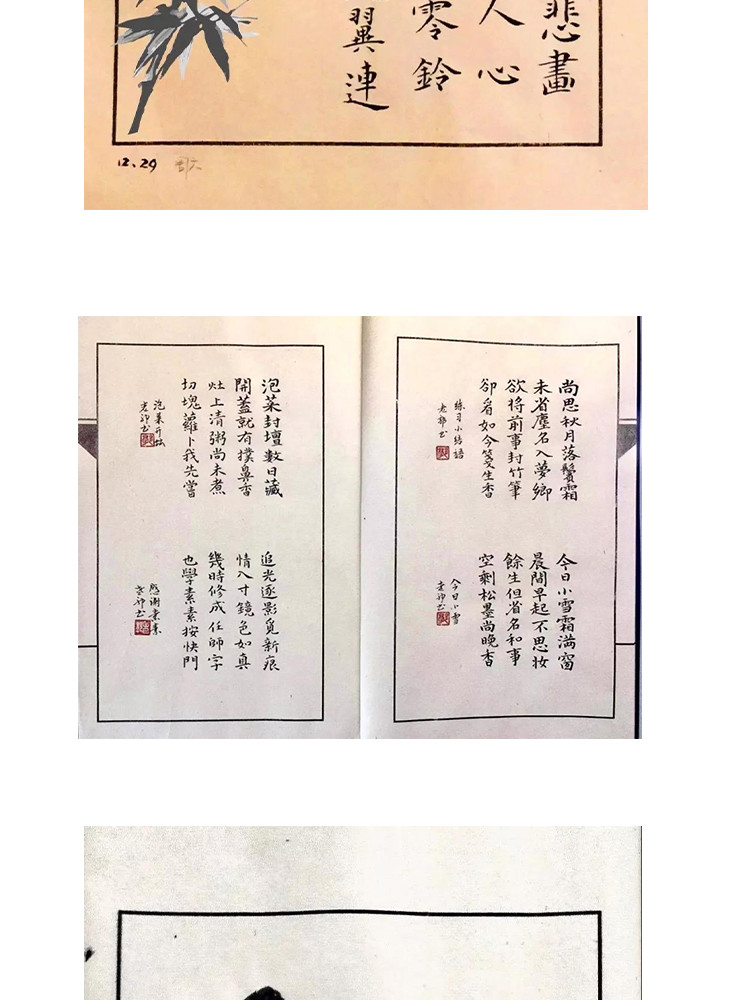 悲畫
人心
零鈴
翼連
12.29
尚思秋月落鬢霜
未省塵名入夢鄉
欲将前事封竹筆
卻看如今箋生香
練习小结語
今日小雪霜满窗
晨間早起不思妝
餘生但省名和事
空剩松墨尚晚香
今日小雪
泡菜封壇數日藏
開蓋就有撲鼻香
灶上清粥尚未煮
切塊蘿卜我先嘗
泡菜开坛
追光逐影覓新痕
情入寸鏡色如真
幾時修成任師字
也學素素按快門
感谢素素